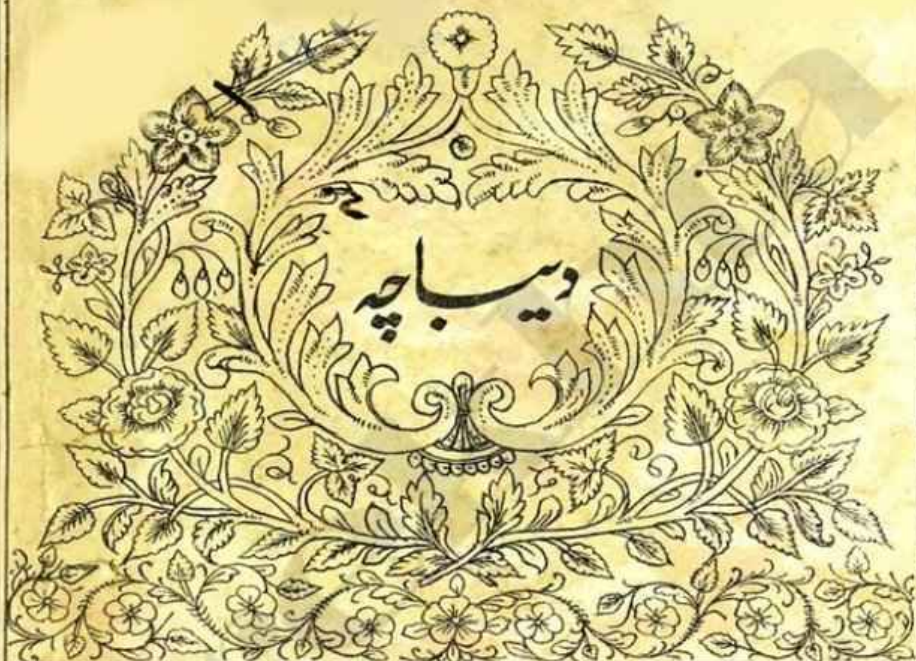 دیباچہ